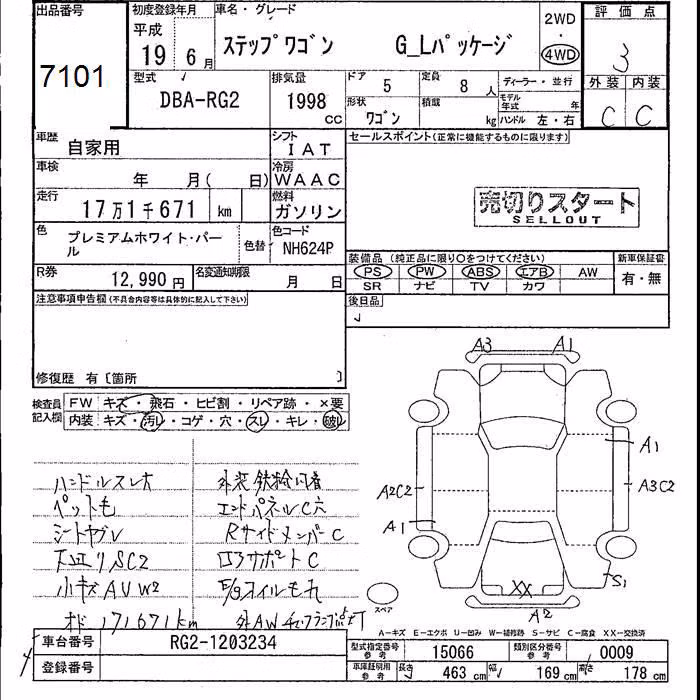 出品番号
7101
初度登録年月
平成
19 6月
車名・グレード
ステップワゴン G_Lパッケージ
2WD
・
4WD
評価点
3
外装 内装
C C
型式
DBA-RG2
排気量
1998 cc
ドア 5
定員 8 人
ディーラー・並行
形状 ワゴン
積載 kg
モデル年式 年
ハンドル 左・右
車歴
自家用
シフト
IAT
セールスポイント(正常に機能するものに限ります)
車検
年 月( 日)
冷房
WAAC
走行
17万1千671 km
燃料
ガソリン
売切りスタート
SELLOUT
色
プレミアムホワイト・パール
色替
色コード
NH624P
装備品 (純正品に限り○をつけてください)
新車保証書
PS PW ABS エアB AW
SR ナビ TV カワ
有・無
R券
12,990 円
名変通知期限
月 日
後日品
注意事項申告欄(不具合内容等は具体的に記入して下さい)
修復歴 有〔箇所 〕
検査員記入欄
FW キズ・飛石・ヒビ割・リペア跡・×要
内装 キズ・汚レ・コゲ・穴・スレ・キレ・破レ
A3 A1
A1
A2C2
A3C2
A1
S1
XX
A2
スペア
ハンドルスレ大
外装鉄粉付着
ペット毛
エンドパネルC穴
シートヤブレ
RサイドメンバーC
小キズAUW2
E/gオイルモレ
171671km
A-キズ E-エクボ U-凹み W-補修跡 S-サビ C-腐食 XX-交換済
車台番号
RG2-1203234
登録番号
型式指定番号 参考
15066
類別区分番号 参考
0009
車庫証明用 参考
長さ 463 cm
幅 169 cm
高さ 178 cm